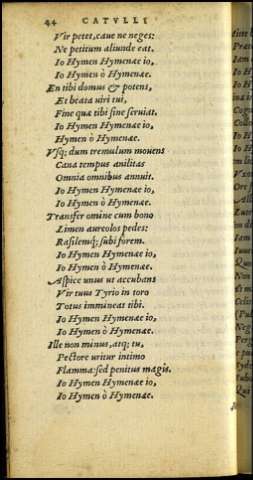 44 CATVLLI
Vir petet, caue ne neges:
Ne petitum aliunde eat.
Io Hymen Hymenæe io,
Io Hymen ò Hymenæe.
En tibi domus & potens,
Et beata uiri tui,
Fine quæ tibi sine seruiat.
Io Hymen Hymenæe io,
Hymen ò Hymenæe.
Vsq; dum tremulum mouens
Cana tempus anilitas
Omnia omnibus annuit.
Io Hymen Hymenæe io,
Io Hymen ò Hymenæe.
Transfer omine cum bono
Limen aureolos pedes:
Rasilemq; subi forem.
Io Hymen Hymenæe io,
Io Hymen ò Hymenæe.
Aspice unus ut accubans
Vir tuus Tyrio in toro
Totus immineat tibi.
Io Hymen Hymenæe io,
Io Hymen ò Hymenæe.
Ille non minus, atq; tu,
Pectore uritur intimo
Flamma: sed penitus magis.
Io Hymen Hymenæe io,
Io Hymen ò Hymenæe.